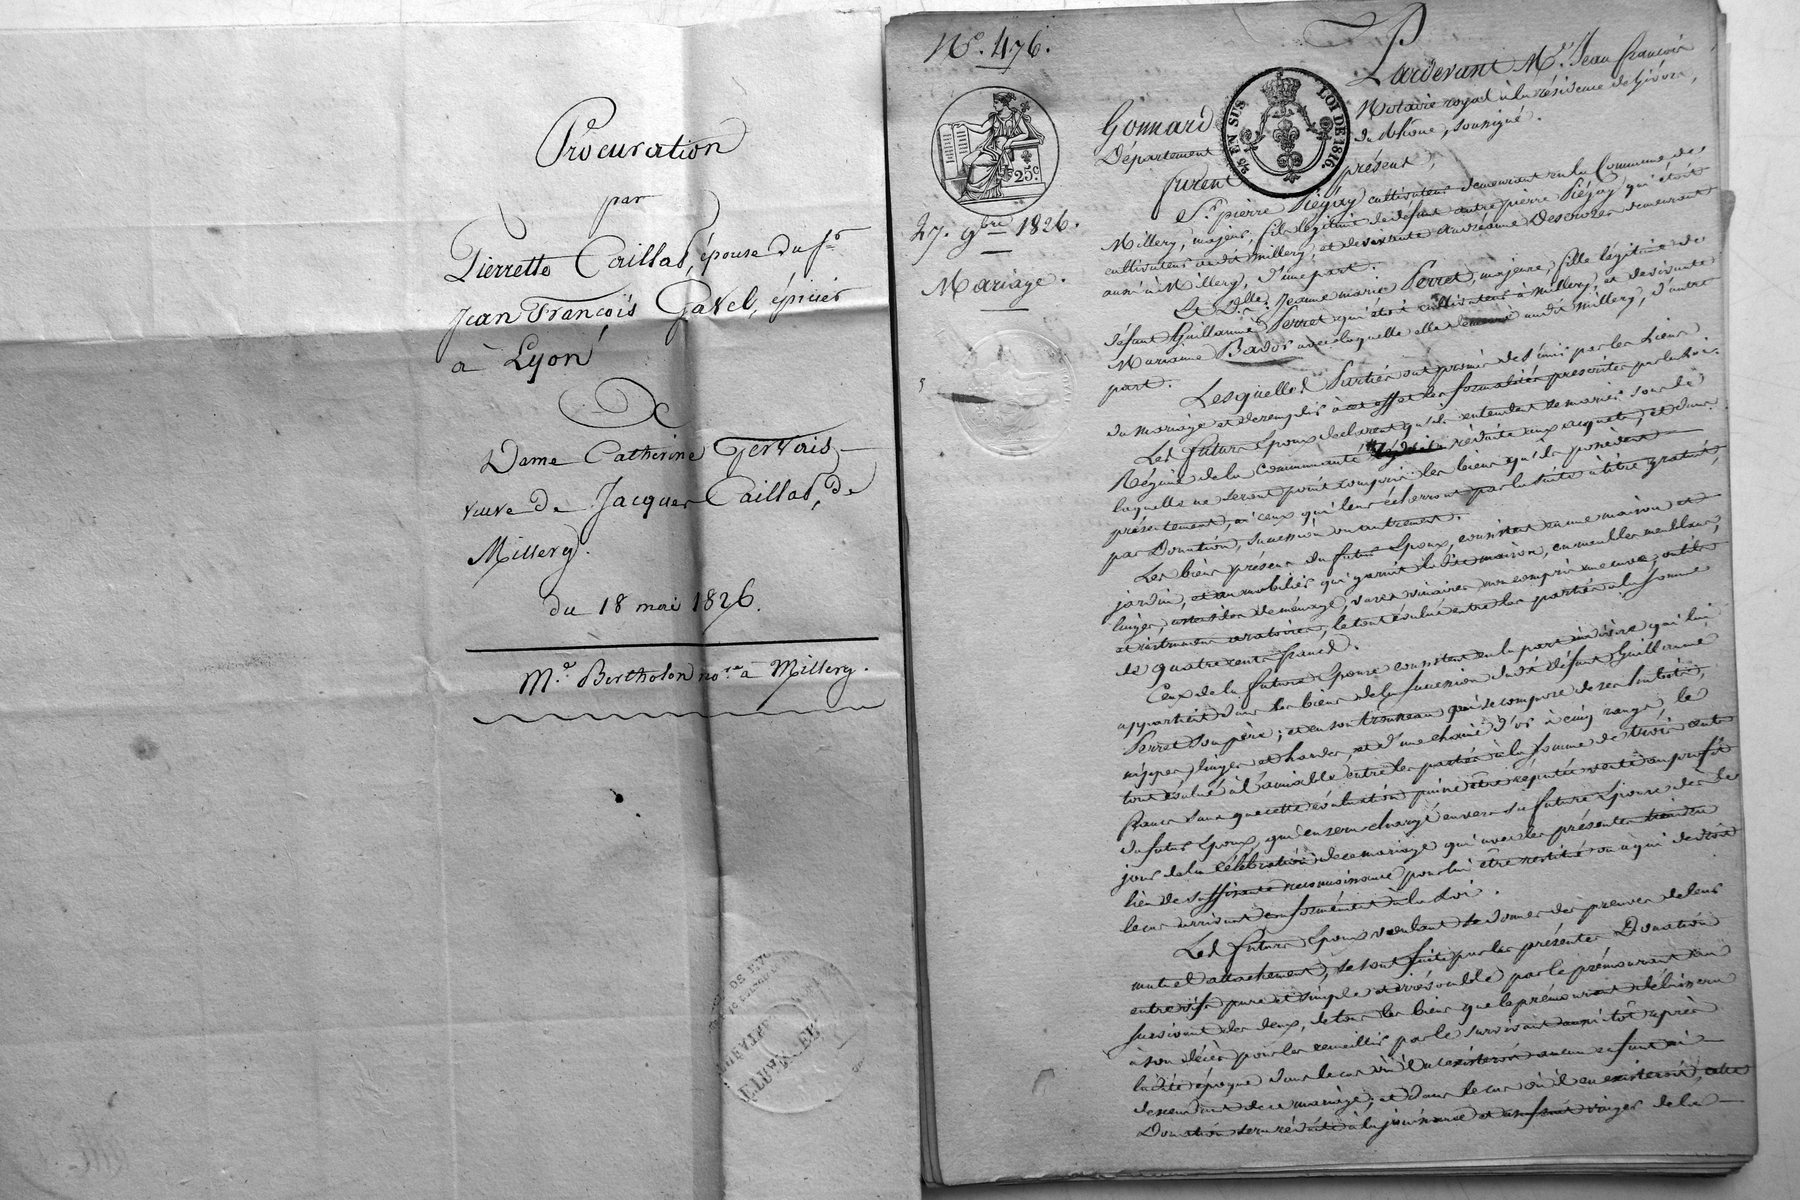 Procuration
par
Pierrette Caillat, épouse du Sr
Jean François Gavel, épicier
à Lyon
De
Dame Catherine Gervais
veuve de Jacques Caillat, de
Millery.
du 18 mai 1826.
Me. Bertholon nore à Millery.
No. 476.
25c.
27. 9bre 1826.
Mariage.
25 EN SUS
LOI DE 1816.
Pardevant Me. Jean françois
Gonnard Notaire royal à la résidence de Givors,
Département du Rhône, soussigné.
furent présent,
Sr. pierre Piégay cultivateur demeurant en la Commune de
Millery, majeur, fils légitime de défunt autre pierre Piégay qui était
cultivateur audit Millery, et de vivante demeurant
aussi à Millery, d'une part.
Et Dlle. Jeanne marie Perret, majeure, fille légitime de
défunt Guillaume Perret qui était cultivateur à Millery, et de vivante
Marianne avec laquelle elle demeure audit Millery, d'autre
part.
Lesquelles Parties ont promis de s'unir par les Liens
du mariage et de remplir à cet effet les formalités prescrites par la Loi.
Les futurs Epoux déclarent qu'ils entendent se marier sous le
Régime de la communauté réduite aux acquets, et dans
laquelle ne seront point compris les biens qu'ils possèdent
présentement, ni ceux qui leur écherront par la suite à titre gratuit,
par Donation, succession ou autrement.
Les biens présens du futur Epoux, consistent en une maison et
jardin, et au mobilier qui garnit la de. maison, en meubles meublans,
linges, ustensiles de ménage, vases vinaires non compris une cuve, outils
et instrumens aratoires, le tout évalué entre les parties à la somme
de quatre cents francs.
Ceux de la future Epouse consistent en la part indivise qui lui
appartient dans les biens de la succession dudit défunt Guillaume
Perret son père; et en son trousseau qui se compose de ses habits,
nippes, linges et hardes, et d'une chaine d'or à cinq rangs, le
tout évalué à l'amiable entre les parties à la somme de trois cents
francs sans que cette évaluation puisse être réputée vente au profit
du futur Epoux, qui en sera chargé envers la future Epouse dès le
jour de la célébration de ce mariage qui avec les présentes tiendra
lieu de suffisante reconnaissance pour lui être restitué ou à qui de droit
le cas arrivant conformément à la Loi.
Les futurs Epoux voulant se donner des preuves de leur
mutuel attachement, se sont faits par les présentes Donation
entre vifs pure et simple et irrévocable par le prémourant au
survivant des deux, de tous les biens que le prémourant délaissera
à son décès pour les recueillir par le survivant aussitôt après
ladite époque dans le cas où il n'existerait aucun enfant ni
descendant de ce mariage; et dans le cas où il en existerait, cette
Donation sera réduite à la jouissance et usufruit viager de la